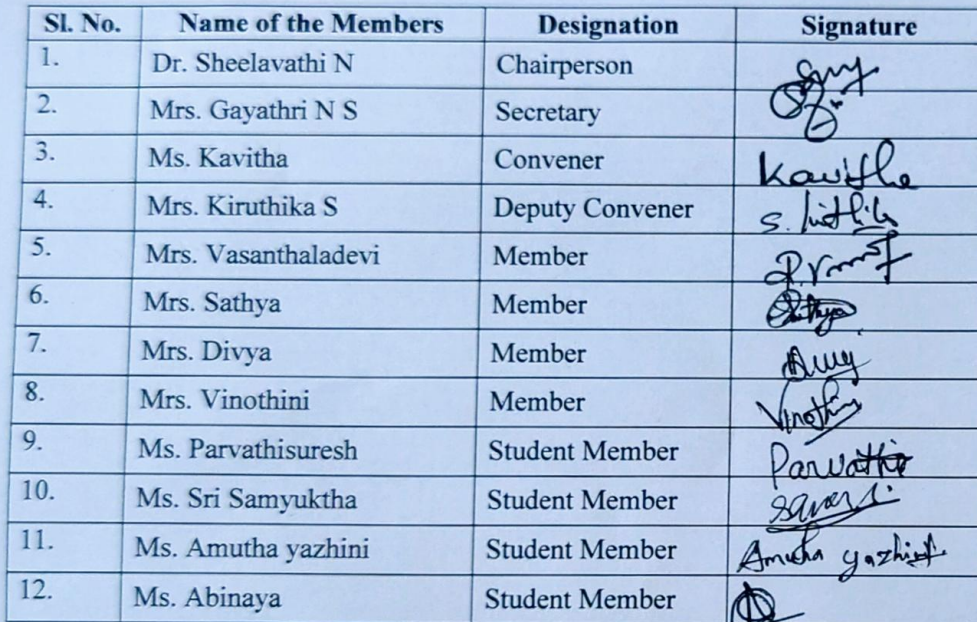 Sl. No. Name of the Members Designation Signature
1. Dr. Sheelavathi N Chairperson
2. Mrs. Gayathri N S Secretary
3. Ms. Kavitha Convener Kavitha
4. Mrs. Kiruthika S Deputy Convener S.
5. Mrs. Vasanthaladevi Member
6. Mrs. Sathya Member Sathya
7. Mrs. Divya Member
8. Mrs. Vinothini Member
9. Ms. Parvathisuresh Student Member Parvathi
10. Ms. Sri Samyuktha Student Member
11. Ms. Amutha yazhini Student Member Amutha yazhini
12. Ms. Abinaya Student Member